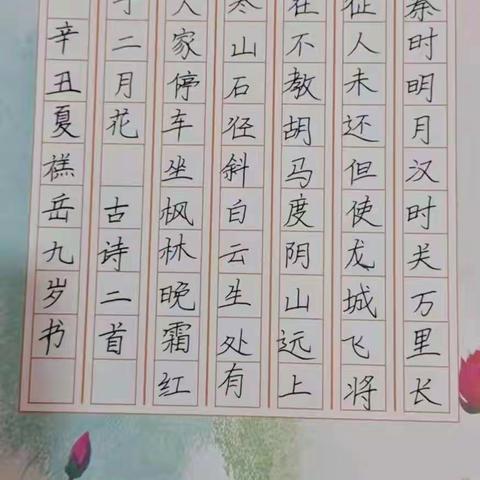 秦时明月汉时关万里长
征人未还但使龙城飞将
在不教胡马度阴山远上
寒山石径斜白云生处有
人家停车坐枫林晚霜红
于二月花 古诗二首
辛丑夏禚岳九岁书